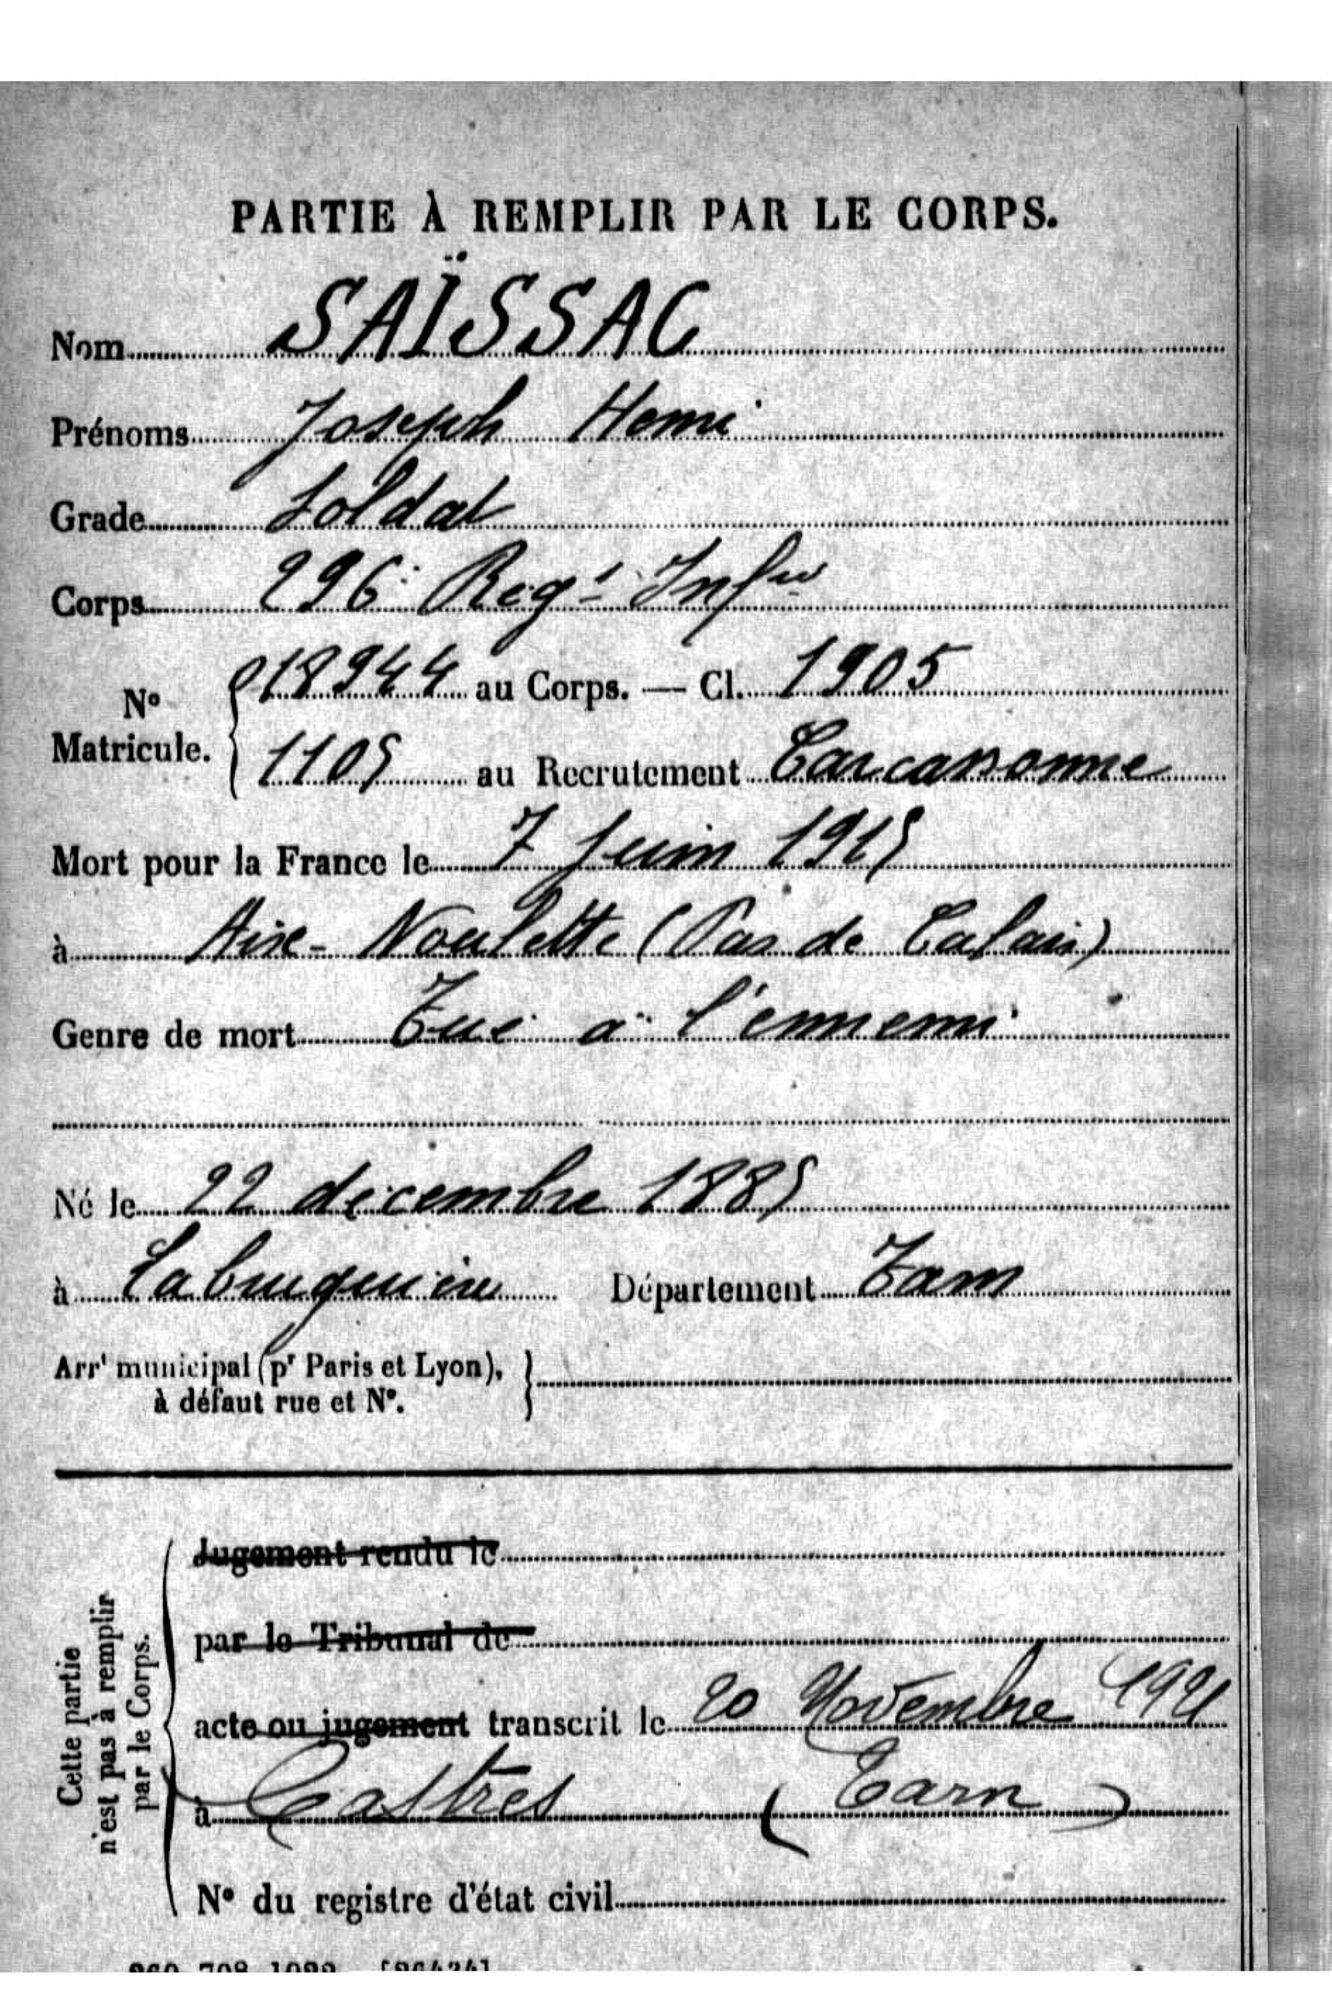 PARTIE À REMPLIR PAR LE CORPS.
Nom SAÏSSAC
Prénoms Joseph Henri
Grade Soldat
Corps 296 Regt Infie
No Matricule. 018944 au Corps. — Cl. 1905
1105 au Recrutement Carcassonne
Mort pour la France le 7 Juin 1915
à Aix-Noulette (Pas de Calais)
Genre de mort Tué à l'ennemi
Né le 22 décembre 1885
à Labruguière Département Tarn
Arrt municipal (pr Paris et Lyon),
à défaut rue et No.
Cette partie
n'est pas à remplir
par le Corps.
Jugement rendu le
par le Tribunal de
acte ou jugement transcrit le 20 Novembre 1921
à Castres (Tarn)
No du registre d'état civil